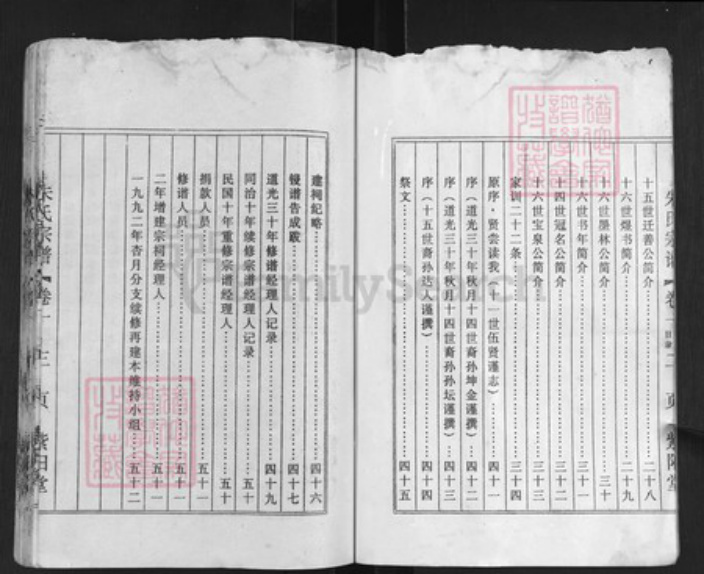 朱氏宗谱 卷一 目录 二页 紫阳堂
十五世迁善公简介……二十八
十六世煜书简介……二十九
十六世墨林公简介……三十
十六世书年简介……三十一
十四世冠名公简介……三十二
十六世宝泉公简介……三十三
家训二十二条……三十四
原序·贤尝读我（十一世伍贤谨志）……四十一
序（道光三十年秋月十四世裔孙坤金谨撰）……四十二
序（道光三十年秋月十四世裔孙孙坛谨撰）……四十三
序（十五世裔孙达人谨撰）……四十四
祭文……四十五
建祠纪略……四十六
镘谱告成跋……四十七
道光三十年修谱经理人记录……四十九
同治十年续修宗谱经理人记录……五十
民国十年重修宗谱经理人……五十
捐款人员……五十一
修谱人员……五十一
二年增建宗祠经理人……五十一
一九九二年杏月分支续修再建本维持小组……五十二
朱氏宗谱 卷一 三页 紫阳堂
FamilySearch